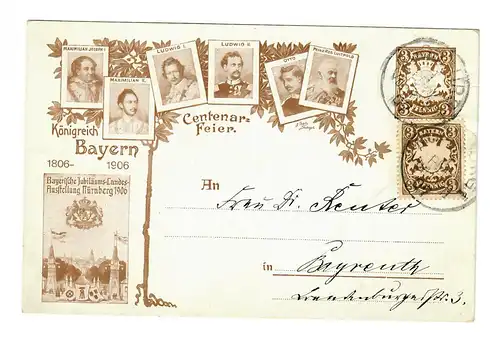 MAXIMILIAN JOSEPH I.
MAXIMILIAN II.
LUDWIG I.
LUDWIG II.
OTTO
PRINZ REG. LUITPOLD
Königreich
Bayern
1806-1906
Centenar-
Feier.
Bayerische Jubiläums-Landes-
Ausstellung Nürnberg 1906
BAYERN
3 3
PFENNIG
BAYERN
3 3
PFENNIG
An
Frau Dr. Reuter
in Bayreuth